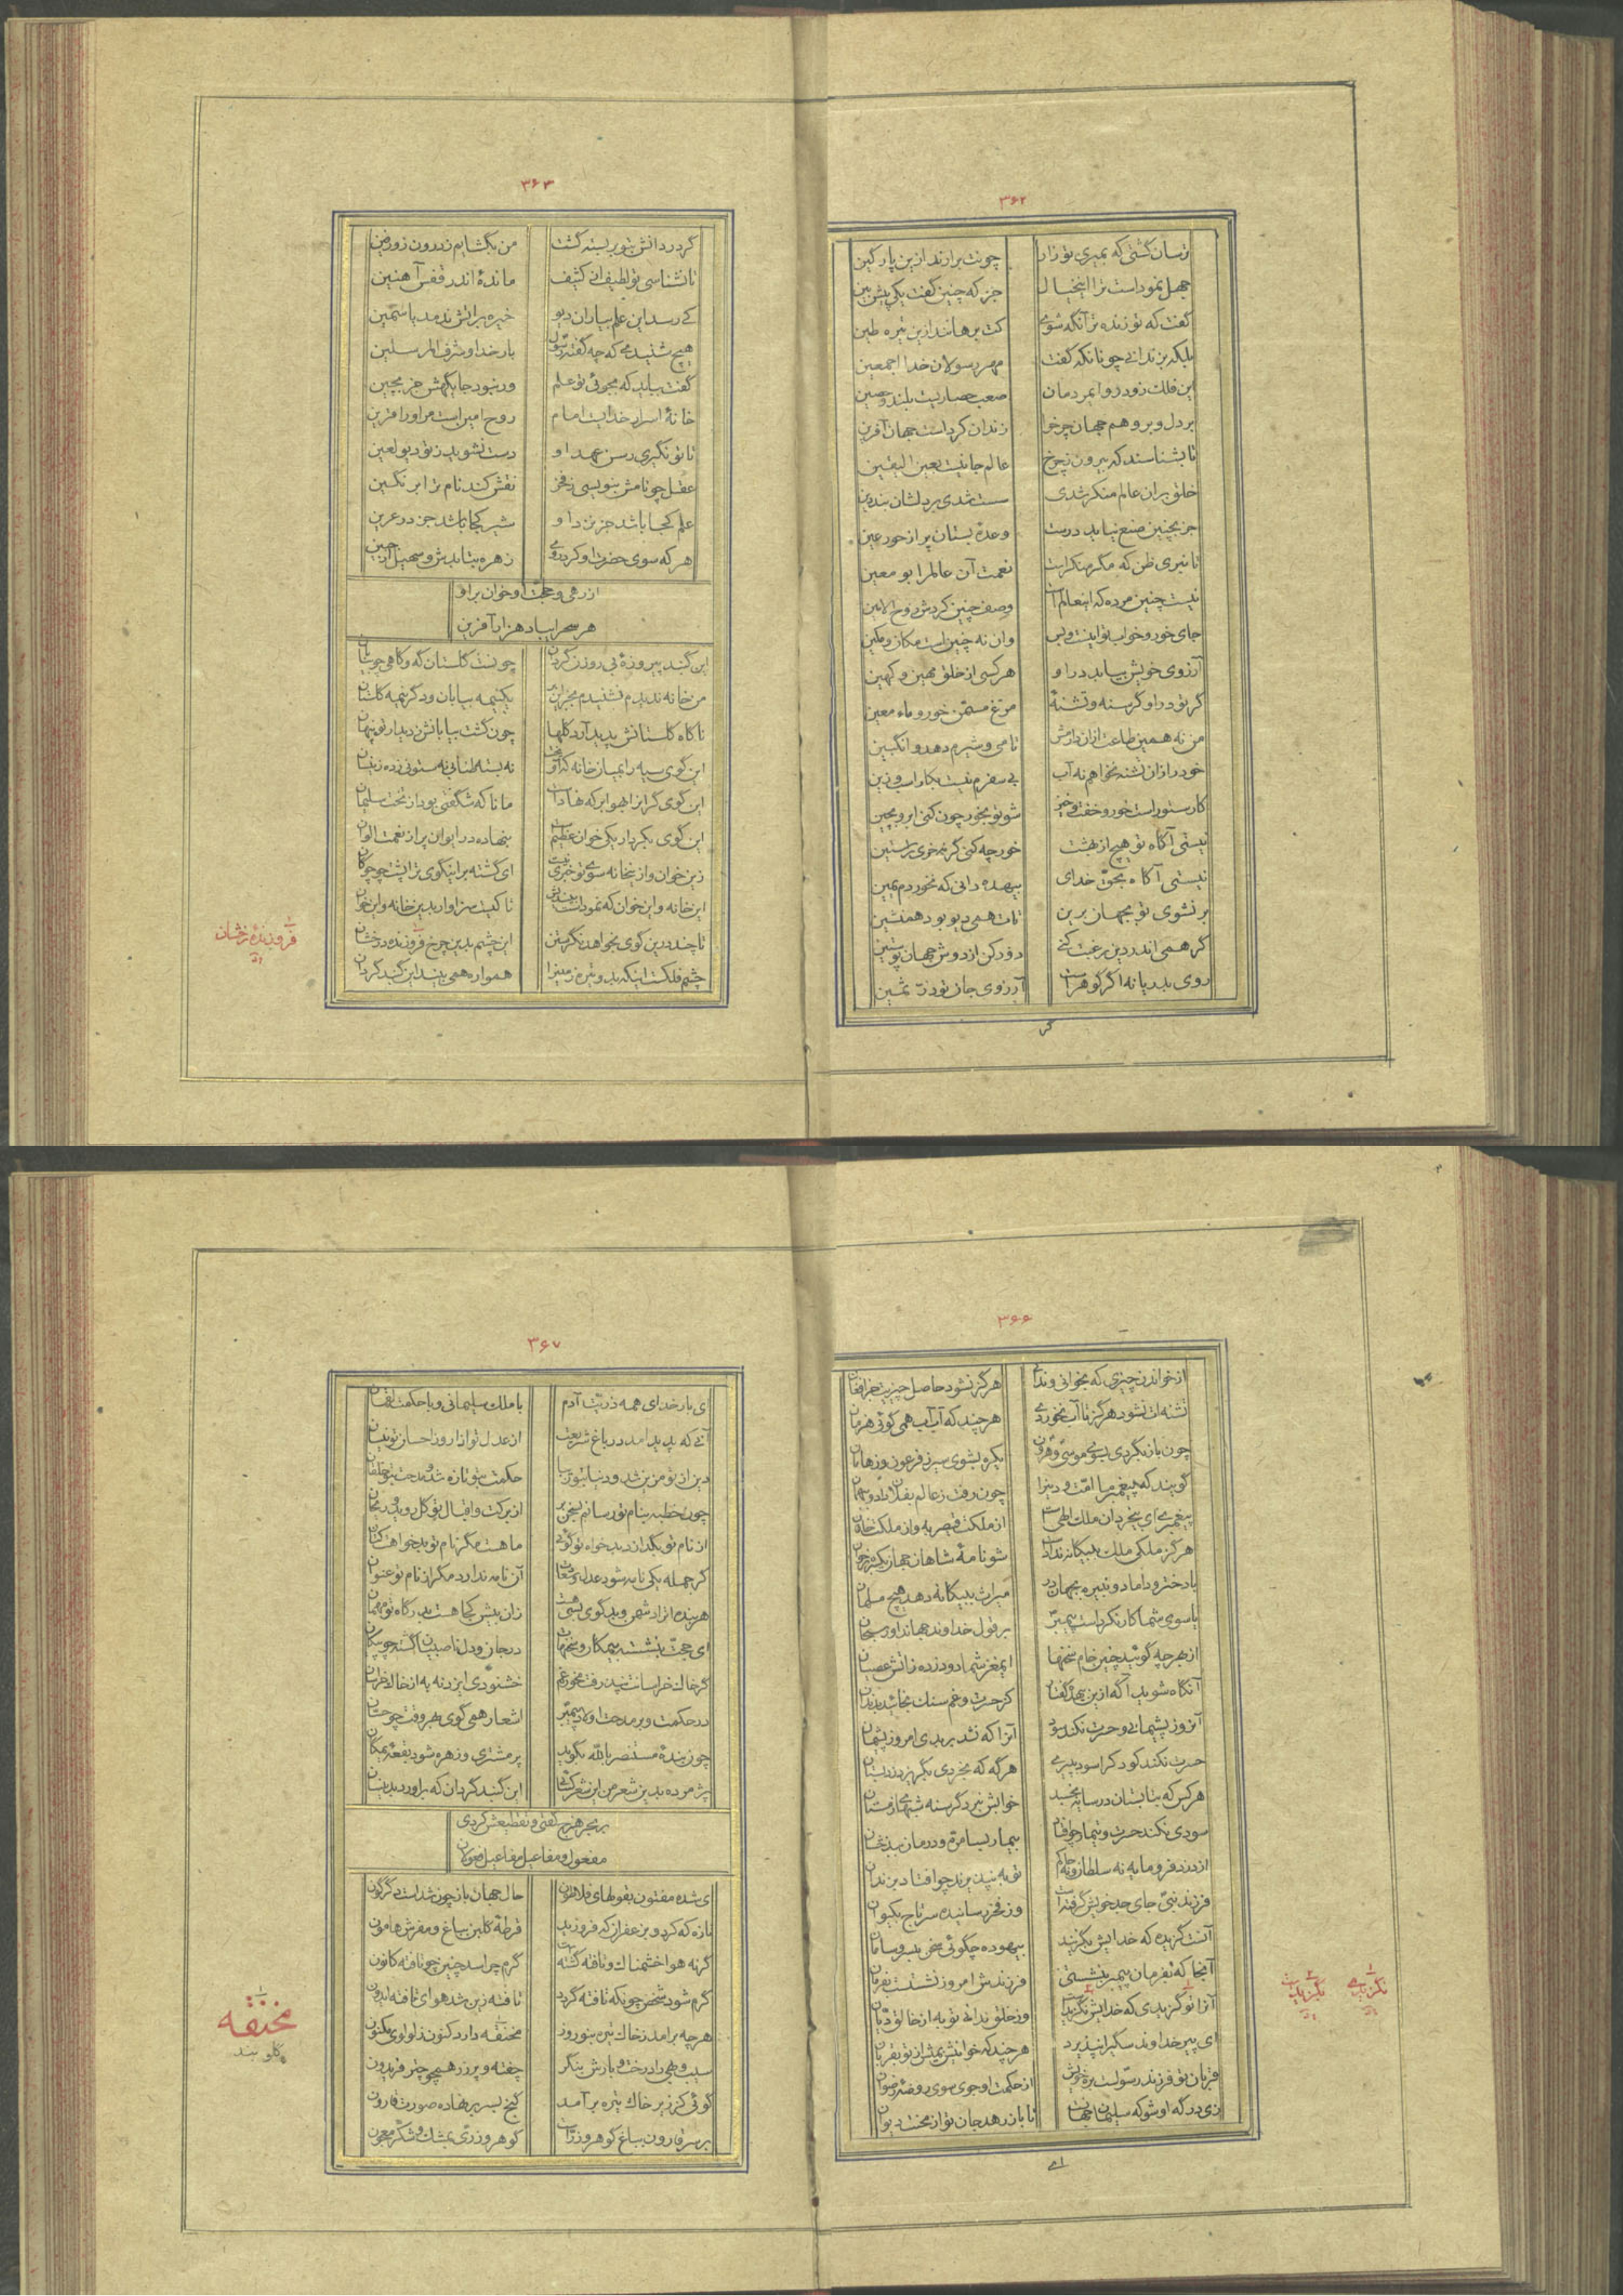 ۳۶۲
ترسان گشتی که بمیری تو زار چونت برارند ازین پارگین
جهل نمود است ترا اینخیال جز که چنین گفت یکی پیش بین
گفت که تو زنده تر آنگه شوی کت برهانند ازین تیره طین
بلکه بزندانی چونانکه گفت مهر رسولان خدا اجمعین
این فلک زود رو ایمردمان صعب حصاریست بلند و حصین
بر دل و بر وهم جهان چرخ زندان کرد است جهان آفرین
تا بشناسند که بیرون ز چرخ عالم جانیست بعین الیقین
خلق بران عالم منکر شدی سست شدی بر دلشان بند دین
جز بچنین صنع نیاید درست وعدهٔ بستان پر از حور عین
تا نبری ظن که مگر منکر است نعمت آن عالم را بو معین
نیست چنین مرده که اینعالم است وصف چنین کردش روح الامین
جای خور و خواب تو اینست و بس وان نه چنین است مکان و مکین
آرزوی خویش بیابد در او هر کسی از خلق مهین و کهین
گر تو در او گرسنه و تشنهٔ مرغ مسمن خور و ماء معین
من نه همین طاعت ازان دارمش تا می و شیرم دهد و انگبین
خود رازان تشنه نخواهم نه آب بی سفرم نیست بکار اسپ و زین
کار ستور است خور و خفت و خیز شو تو بخور چون کنی ابرو بچین
نیستی آگاه تو هیچ از بهشت خور چه کنی گر نه خوی راستین
نیستی آگاه بحق خدای بیهده دانی که نخوردم یمین
بر نشوی تو بجهان برین تات همی دیو بود همنشین
گر همی اندر دین رغبت کنی دور کن از دوش جهان پوستین
روی بدریا نه اگر گوهر است آرزوی جان تو در ثمین
گر
۳۶۳
گر در دانش بتو بر بسته گشت من بگشایم ز درون زورفین
تا نشناسی تو لطیف از کثیف ماندهٔ اندر قفس آهنین
کی رسد این علم بیاران دیو خیره بر آتش ندمد یاسمین
هیچ شنیدی که چه گفته رسول بار خدا و شرف المرسلین
گفت بباید که بجوئی تو علم ور نبود جایگهش جز بچین
خانهٔ اسرار خدایست امام روح امین است مر او را قرین
تا تو نگیری رسن عهد او دست نشوید ز تو دیو لعین
عقل چو نامش بنویسی ز فخر نقش کند نام ترا بر نگین
علم کجا باشد جز نزد او شیر کجا باشد جز در عرین
هر که سوی حضرت او کرد روی زهره بتابدش و سهیل از جبین
از رهی و حجت او خوان برو
هر سحر ایباد هزار آفرین
این گنبد پیروزهٔ بی روزن گردان چونست گلستان گه و گاهی چو بیابان
من خانه ندیدم نشنیدم بجز این نیز یکنیمه بیابان و دگر نیمه گلستان
ناگاه گلستانش پدید آرد گلها چون گشت بیابانش ز دیدار تو پنهان
این گوی سیه را بمیان خانه که آویخت نه بسته طنابی نه ستونی زده زینسان
این گوی گرانرا بهوا بر که نهاد است مانا که شگفتی بود از تخت سلیمان
این گوی بکردار یکی خوان عظیم است بنهاده در ایوان پر از نعمت الوان
زین خوان و ازینخانه سوی تو خبری نیست ای گشته برینگوی ترا پشت چو چوگان
این خانه و این خوان که نمودست بیندیش تا کیست سزاوار بدین خانه و این خوان
تا چند درین گوی بخواهد نگریستن این چشم بدین چرخ فروزندهٔ درخشان
چشم فلکست اینکه بدو تیره زمینرا همواره همی بیند این گنبد گردان
فروزندهٔ رخشان
۳۶۶
از خواندن چیزی که بخوانی و ندانی هرگز نشود حاصل چیزیت جز افغان
تشنه ات نشود هرگز تا آب نخوردی هر چند که آب آب همی گوئی هزمان
چون باز نگردی بسوی موسی و هرون یکره بشوی سیر ز فرعون و ز هامان
گویند که پیغمبر ما امت و دین را چون رفت ز عالم بفلان داد و ببهمان
پیغمبری ای بیخردان ملک الهی است از ملکت قیصر به و از ملکت خاقان
هرگز ملکی ملک ببیگانه ندادست شو نامهٔ شاهان جهان یکسره برخوان
با دختر و داماد و نبیره بجهان در میراث ببیگانه دهد هیچ مسلمان
یا سوی شما کار نکردست پیمبر بر قول خداوند جهاندار و سخن دان
از هر چه گوئید چنین خام سخنها ایمغز شما دود زده زآتش عصیان
آنگاه شوید آگه ازین بیهده گفتار کز حسرت و غم سنگ بخائید بدندان
آنروز پشیمانی و حسرت نکند سود آنرا که نشد بر بدی امروز پشیمان
حسرت نکند کودک را سود بپیری هر گه که بخردی بگریزد ز دبستان
هر کس که بتابستان در سایه بخسبد خوابش نبرد گرسنه شبهای زمستان
سودی نکند حسرت و تیمار چو افتاد بیمار بسامره و درمان ببدخشان
از درد فرومایه نه سلطان و نه حاکم توبه نپذیرند چو افتاد بزندان
فرزند نبی جای جد خویش گرفته است وز فخر رسانیده سر تاج بکیوان
آنست گزیده که خدایش بگزیند بیهوده چگوئی سخن بی سر و سامان
آنجا که بفرمان پیمبر بنشستی فرزندش امروز نشستست بفرمان
آنرا تو گزیدی که خدایش نگزیدست وز خلق ندانی تو به از خالق دیان
ای پیر خداوند سگی را نپذیرد هر چند که خوانیش بمیش از تو بقربان
قربان تو فرزند رسولست ره خویش از حکمت او جوی سوی روضهٔ رضوان
زی درگه او شو که سلیمان جهانست تا باز رهد جان تو از محنت دیوان
نگزیدی نگزیدست
ای
۳۶۷
ای بار خدای همه ذریت آدم با ملک سلیمانی و با حکمت لقمان
آنی که پدید آمد در باغ شریعت از عدل تو آذار و ز احسان تو نیسان
دین از تو مزین شد و دنیا بتو زیبا حکمت بتو تازه شد و بدعت بتو خلقان
چون خطبه بنام تو رسانند بمنبر از برکت و اقبال تو گل روید و ریحان
از نام تو بگدازد بدخواه تو گوئی ماهست مگر نام تو بدخواهت کتان
گر جمله یکی نامه شود عدل و سعادت آن نامه ندارد مگر از نام تو عنوان
هر بنده ازاد دشمن و بدگوی بسی هست زان بیش کجا هست بدرگاه تو مهمان
ای حجت بنشسته بیمگان و سخنهات در جان و دل ناصبیان گشته چو پیکان
گر خاک خراسانت نپذرفت مخور غم خشنودی ایزد نه به از خاک خراسان
در حکمت و بر مدحت اولاد پیمبر اشعار همی گوی بهر وقت چو حسان
چون بندهٔ مستنصر بالله بگوید پر مشتری و زهره شود بقعهٔ یمگان
پژمرده بدین شعر من این شعر کسائی این گنبد گردان که برآورد بدینسان
بر بحر هزج گفتی و تقطیعش کردی
مفعول و مفاعیل مفاعیل فعولان
ای شده مفتون بقولهای فلاطون حال جهان باز چون شدست دگرگون
تازه که کرد و بزعفران که فروزید قرطهٔ گلبن بباغ و مفرش هامون
گر نه هوا خشمناک و تافته گشته است گرم چراسد چنین چو تافته کانون
گرم شود شخص چونکه تافته گردد تافته زین شد هوای تافته ایدون
هر چه برآمد ز خاک تیره بنوروز مخنقه دارد کنون ز لولوی مکنون
سیب و بهی را درخت و بارش بنگر چفته و پر زر همچو چتر فریدون
گوئی کز زیر خاک تیره برآمد گنج بسر بر نهاده صورت قارون
بر سر قارون بباغ گوهر و زر است گوهر و زری بمشک و شکر معجون
مخنقه
گلو بند